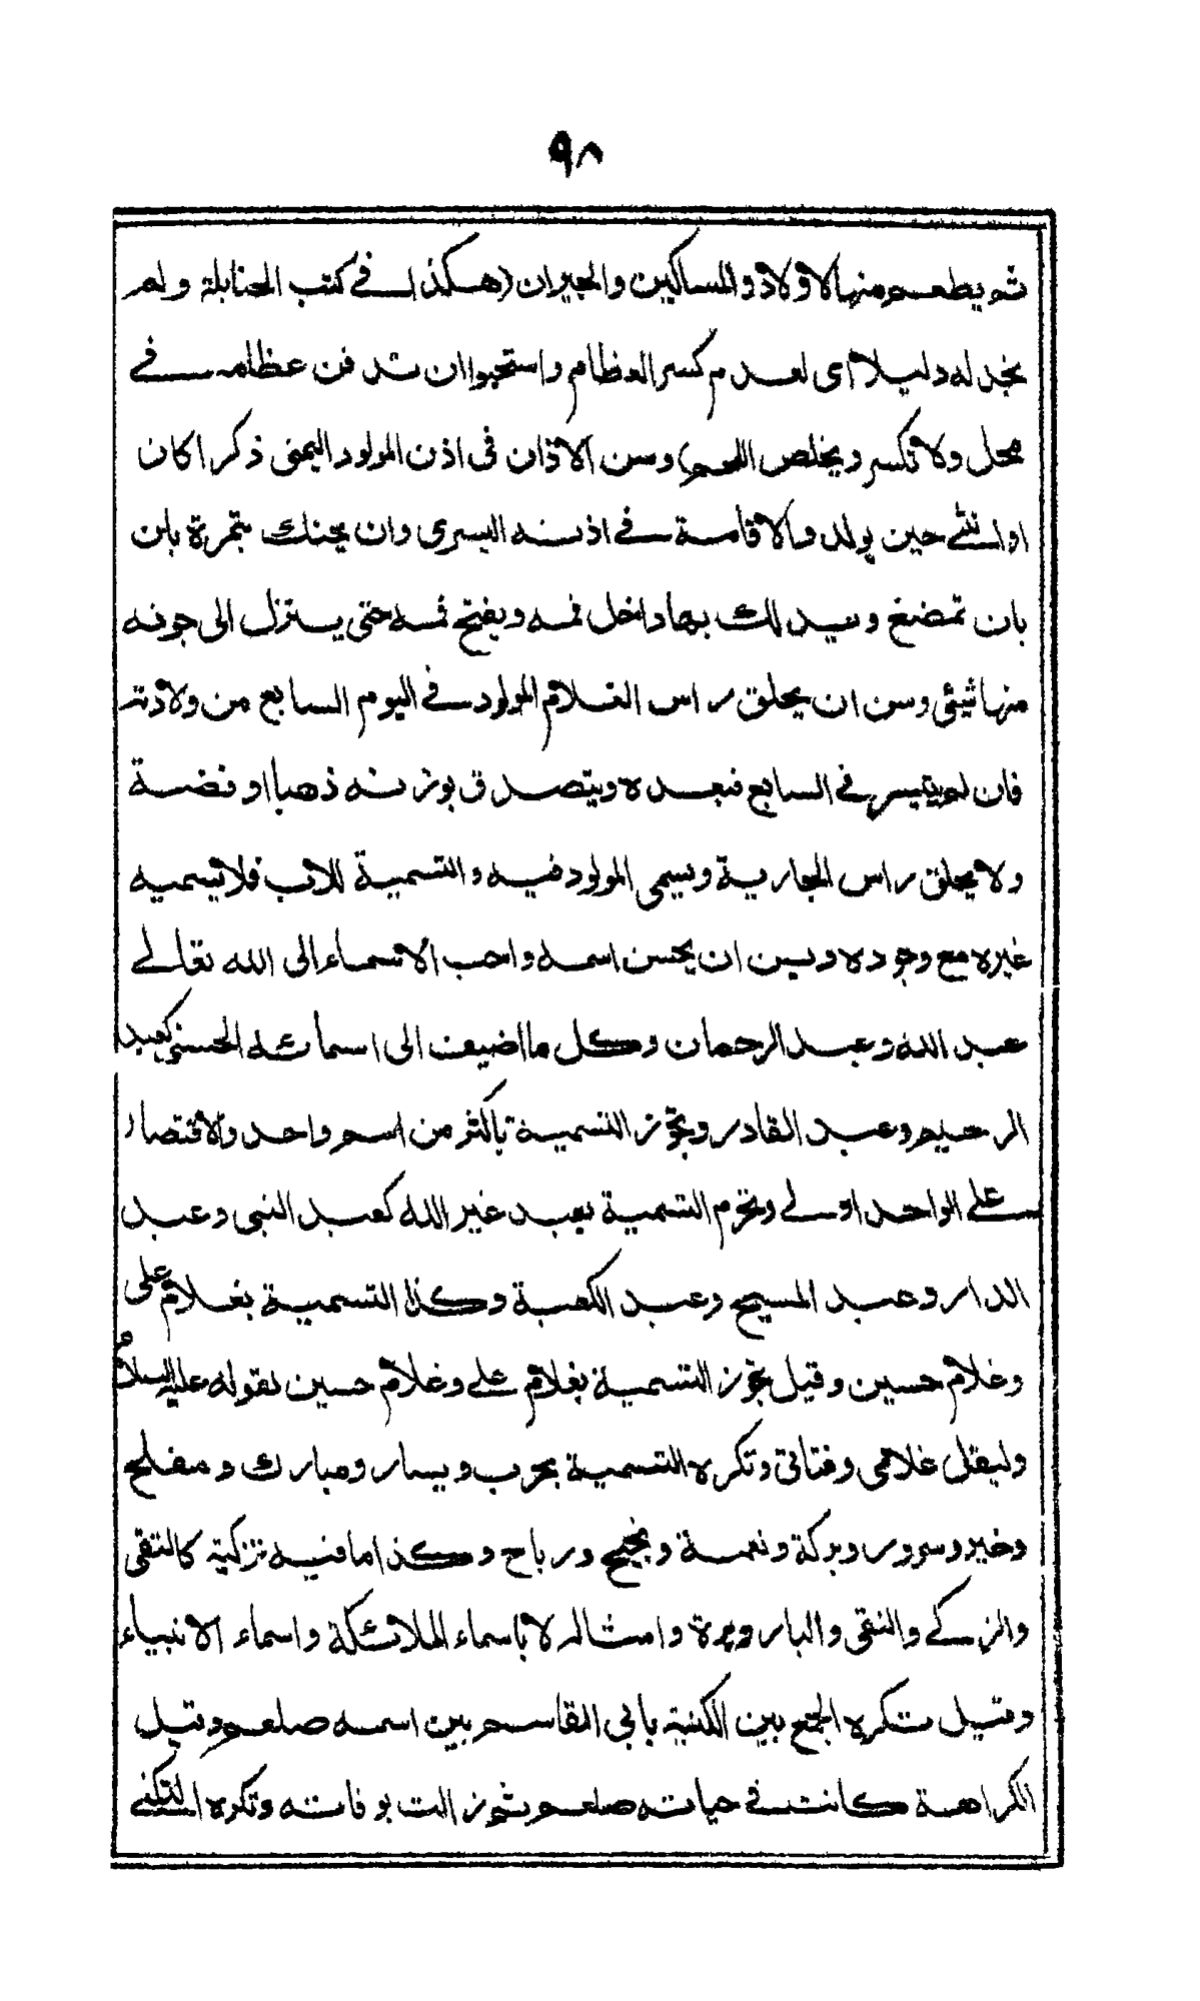 ٩٨
ثم يطعم منها الاولاد والمساكين والجيران (هكذا في كتب الحنابلة ولم
نجد له دليلا اى لعدم كسر العظام واستحبوا ان تدفن عظامه في
محل ولا تكسر ويخلص اللحم) وسن الاذان فى اذن المولود اليمنى ذكرا كان
او انثى حين يولد والاقامة في اذنه اليسرى وان يحنك بتمرة بان
بان تمضغ ويدلك بها داخل فمه ويفتح فمه حتى يتنزل الى جوفه
منها شيئ وسن ان يحلق راس الغلام المولود في اليوم السابع من ولادته
فان لم يتيسر في السابع فبعده ويتصدق بوزنه ذهبا او فضة
ولا يحلق راس الجارية ويسمى المولود فيه والتسمية للاب فلا يسميه
غيره مع وجوده ويسن ان يحسن اسمه واحب الاسماء الى الله تعالے
عبد الله وعبد الرحمان وكل ما اضيف الى اسمائه الحسنى كعبد
الرحيم وعبد القادر ويجوز التسمية باكثر من اسم واحد والاقتصار
على الواحد اولے وتحرم التسمية بعبد غير الله كعبد النبى وعبد
الدار وعبد المسيح وعبد الكعبة وكذا التسمية بغلام على
وغلام حسين وقيل يجوز التسمية بغلام علے وغلام حسين لقوله عليه السلام
وليقل غلامى وفتاتى وتكره التسمية بحرب ويسار ومبارك ومفلح
وخير وسرور وبركة ونعمة ونجيح ورباح وكذا ما فيه تزكية كالتقى
والزكے والنقى والبار وبرة وامثاله لا باسماء الملائكة واسماء الانبياء
وقيل تكره الجمع بين الكنية بابي القاسم وبين اسمه صلعم وقيل
الكراهة كانت في حياته صلعم ثم زالت بوفاته وتكره التكنے